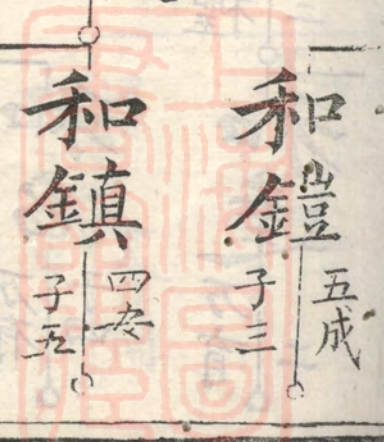 和鎧
五成
子三
和鎮
四安
子五